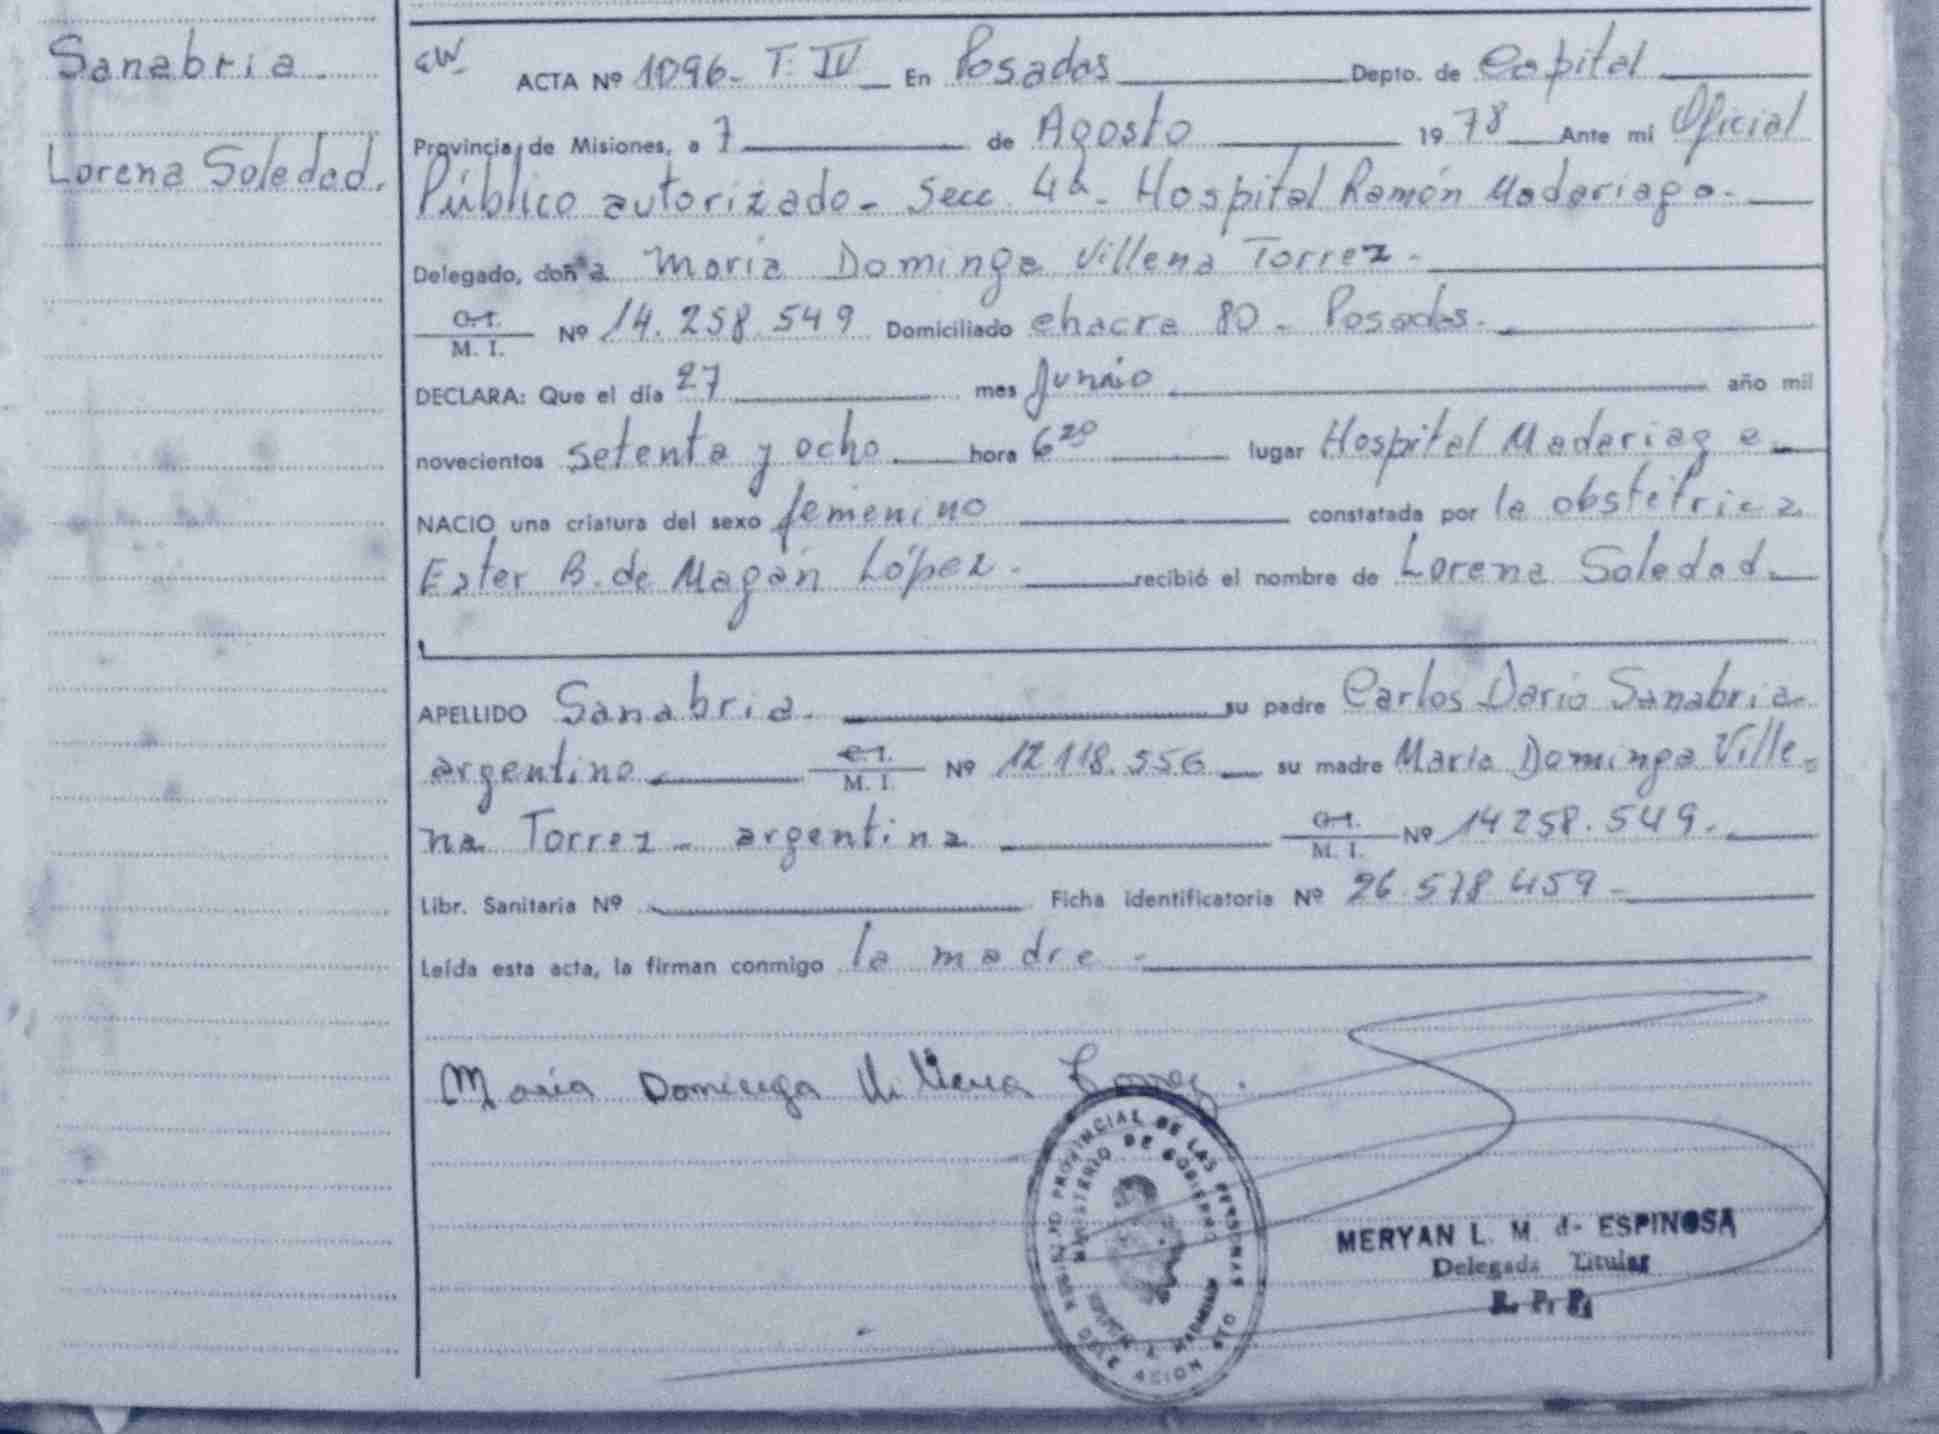 Sanabria.
Lorena Soledad.
ACTA Nº 1096- T. IV En Posadas Depto. de Capital
Provincia de Misiones, a 7 de Agosto 1978 Ante mi Oficial
Público autorizado- Secc. 4a- Hospital Ramón Madariaga-
Delegado, doña María Dominga Villena Torrez-
C.I.
M. I. Nº 14.258.549 Domiciliado chacra 80- Posadas-
DECLARA: Que el día 27 mes Junio año mil
novecientos setenta y ocho hora 6 20 lugar Hospital Madariaga
NACIO una criatura del sexo femenino constatada por la obstétrica
Ester B. de Magán López- recibió el nombre de Lorena Soledad-
APELLIDO Sanabria. su padre Carlos Darío Sanabria
argentino C.I.
M. I. Nº 12.118.556 su madre María Dominga Ville-
na Torrez- argentina C.I.
M. I. Nº 14258.549-
Libr. Sanitaria Nº Ficha identificatoria Nº 26.578.459-
Leída esta acta, la firman conmigo la madre-
María Dominga Villena Torrez.
REGISTRO PROVINCIAL DE LAS PERSONAS
MINISTERIO DE GOBIERNO
DELEGACION
MERYAN L. M. d- ESPINOSA
Delegada Titular
R. P. P.